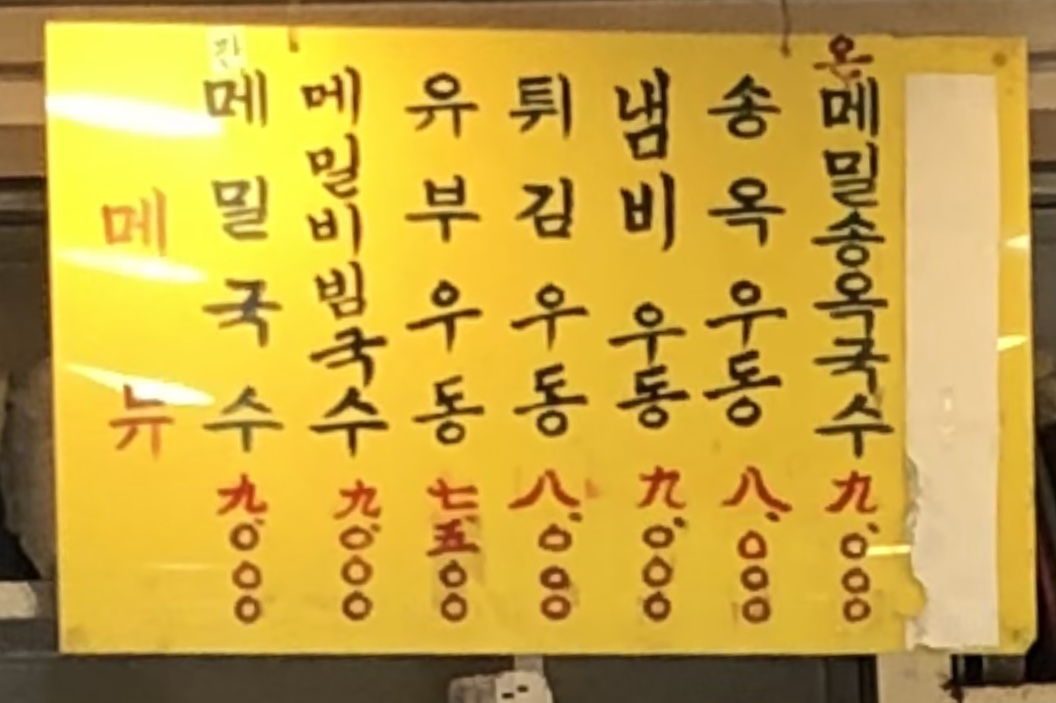 메뉴
판메밀국수 九,000
메밀비빔국수 九,000
유부우동 七,五00
튀김우동 八,000
냄비우동 九,000
송옥우동 八,000
온메밀송옥국수 九,000